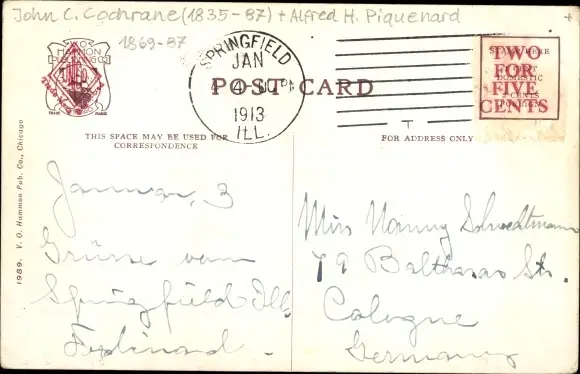 John C. Cochrane (1835-87) + Alfred H. Piquenard
1869-87
SPRINGFIELD
JAN
4
1913
ILL.
POST CARD
TWO
FOR
FIVE
CENTS
THIS SPACE MAY BE USED FOR
CORRESPONDENCE
FOR ADDRESS ONLY
1989. V. O. Hammon Pub. Co., Chicago
TRADE
January 3
Grüsse vom
Springfield Ills
Ferdinand.
Miss Nanny
79 Balthasar Str.
Cologne
Germany